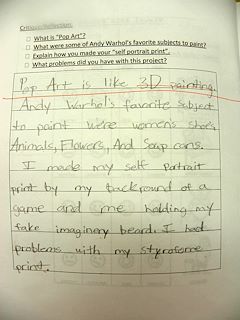 Critique/Reflection:
What is "Pop Art"?
What were some of Andy Warhol's favorite subjects to paint?
Explain how you made your "self portrait print".
What problems did you have with this project?
Pop Art is like 3D painting.
Andy Warhol's favorite subject
to paint were women's shoes
Animals, Flowers, And Soap cans.
I made my self Portrait
print by my backround of a
game and me holding my
fake imaginery beard. I had
problems with my styrofome
print.